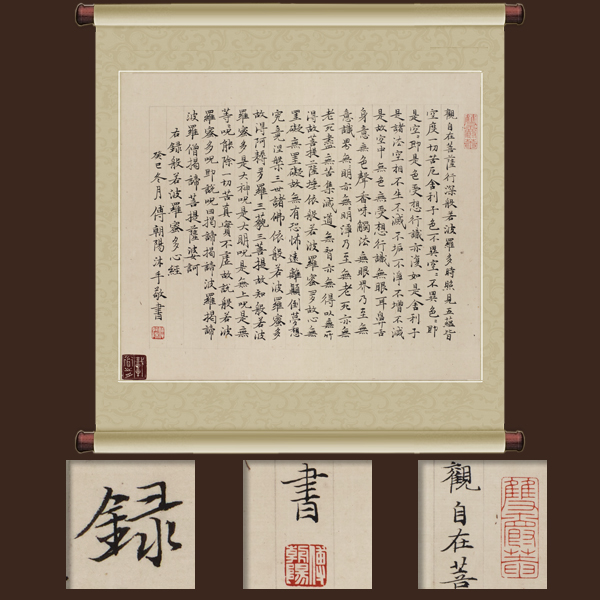 觀自在菩薩行深般若波羅多時照見五蘊皆
空度一切苦厄舍利子色不異空不異色即
是空即是色受想行識亦復如是舍利子
是諸法空相不生不滅不垢不淨不增不減
是故空中無色無受想行識無眼耳鼻舌
身意無色聲香味觸法無眼界乃至無
意識界無明亦無明淨乃至無老死亦無
老死盡無苦集滅道無智亦無得以無所
得故菩提薩埵依般若波羅蜜多故心無
罣礙無罣礙故無有恐怖遠離顛倒夢想
究竟涅槃三世諸佛依般若波羅蜜多
故得阿耨多羅三藐三菩提故知般若波
羅蜜多是大神咒是大明咒是無上咒是無
等咒能除一切苦真實不虛故說般若波
羅蜜多咒即說咒曰揭諦揭諦波羅揭諦
波羅僧揭諦菩提薩婆訶
右錄般若波羅蜜多心經
癸巳冬月傅朝陽沐手敬書
錄
書
傅朝陽
觀自在菩